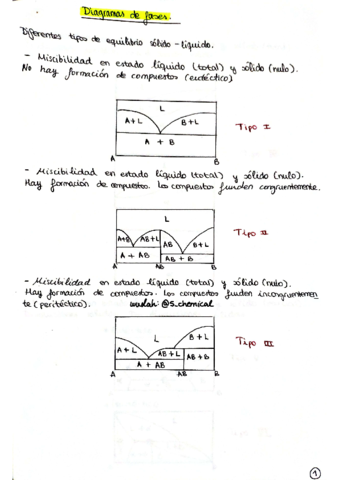 Diagramas de fases.
Diferentes tipos de equilibrio sólido-líquido.
- Miscibilidad en estado líquido (total) y sólido (nulo).
No hay formación de compuestos (eutéctico)
L
A+L
B+L
A + B
A
B
Tipo I
- Miscibilidad en estado líquido (total) y sólido (nulo).
Hay formación de compuestos. Los compuestos funden congruentemente.
L
A+L
AB+L
AB
B+L
A + AB
AB + B
A
AB
B
Tipo II
- Miscibilidad en estado líquido (total) y sólido (nulo).
Hay formación de compuestos. Los compuestos funden incongruentemen
te (peritéctico).
wuolah: @s.chemical
L
B+L
A+L
AB+L
AB+B
A + AB
A
AB
B
Tipo III
1